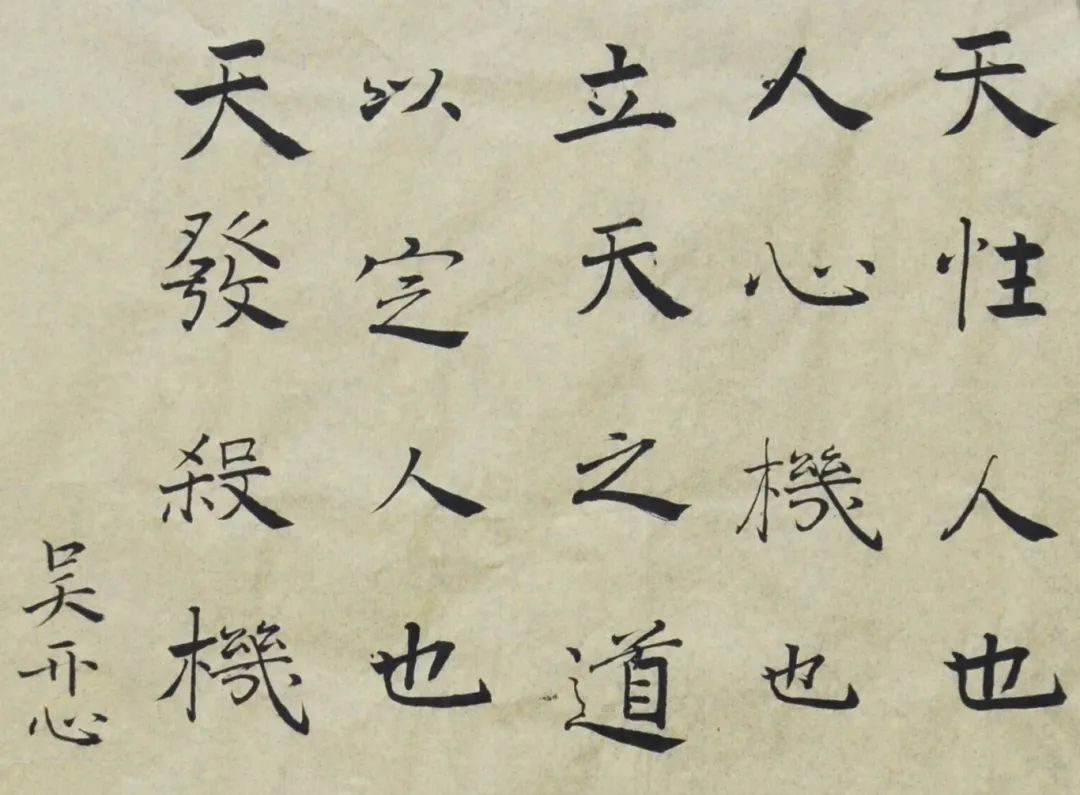 天性人也
人心機也
立天之道
以定人也
天發殺機
吴开心